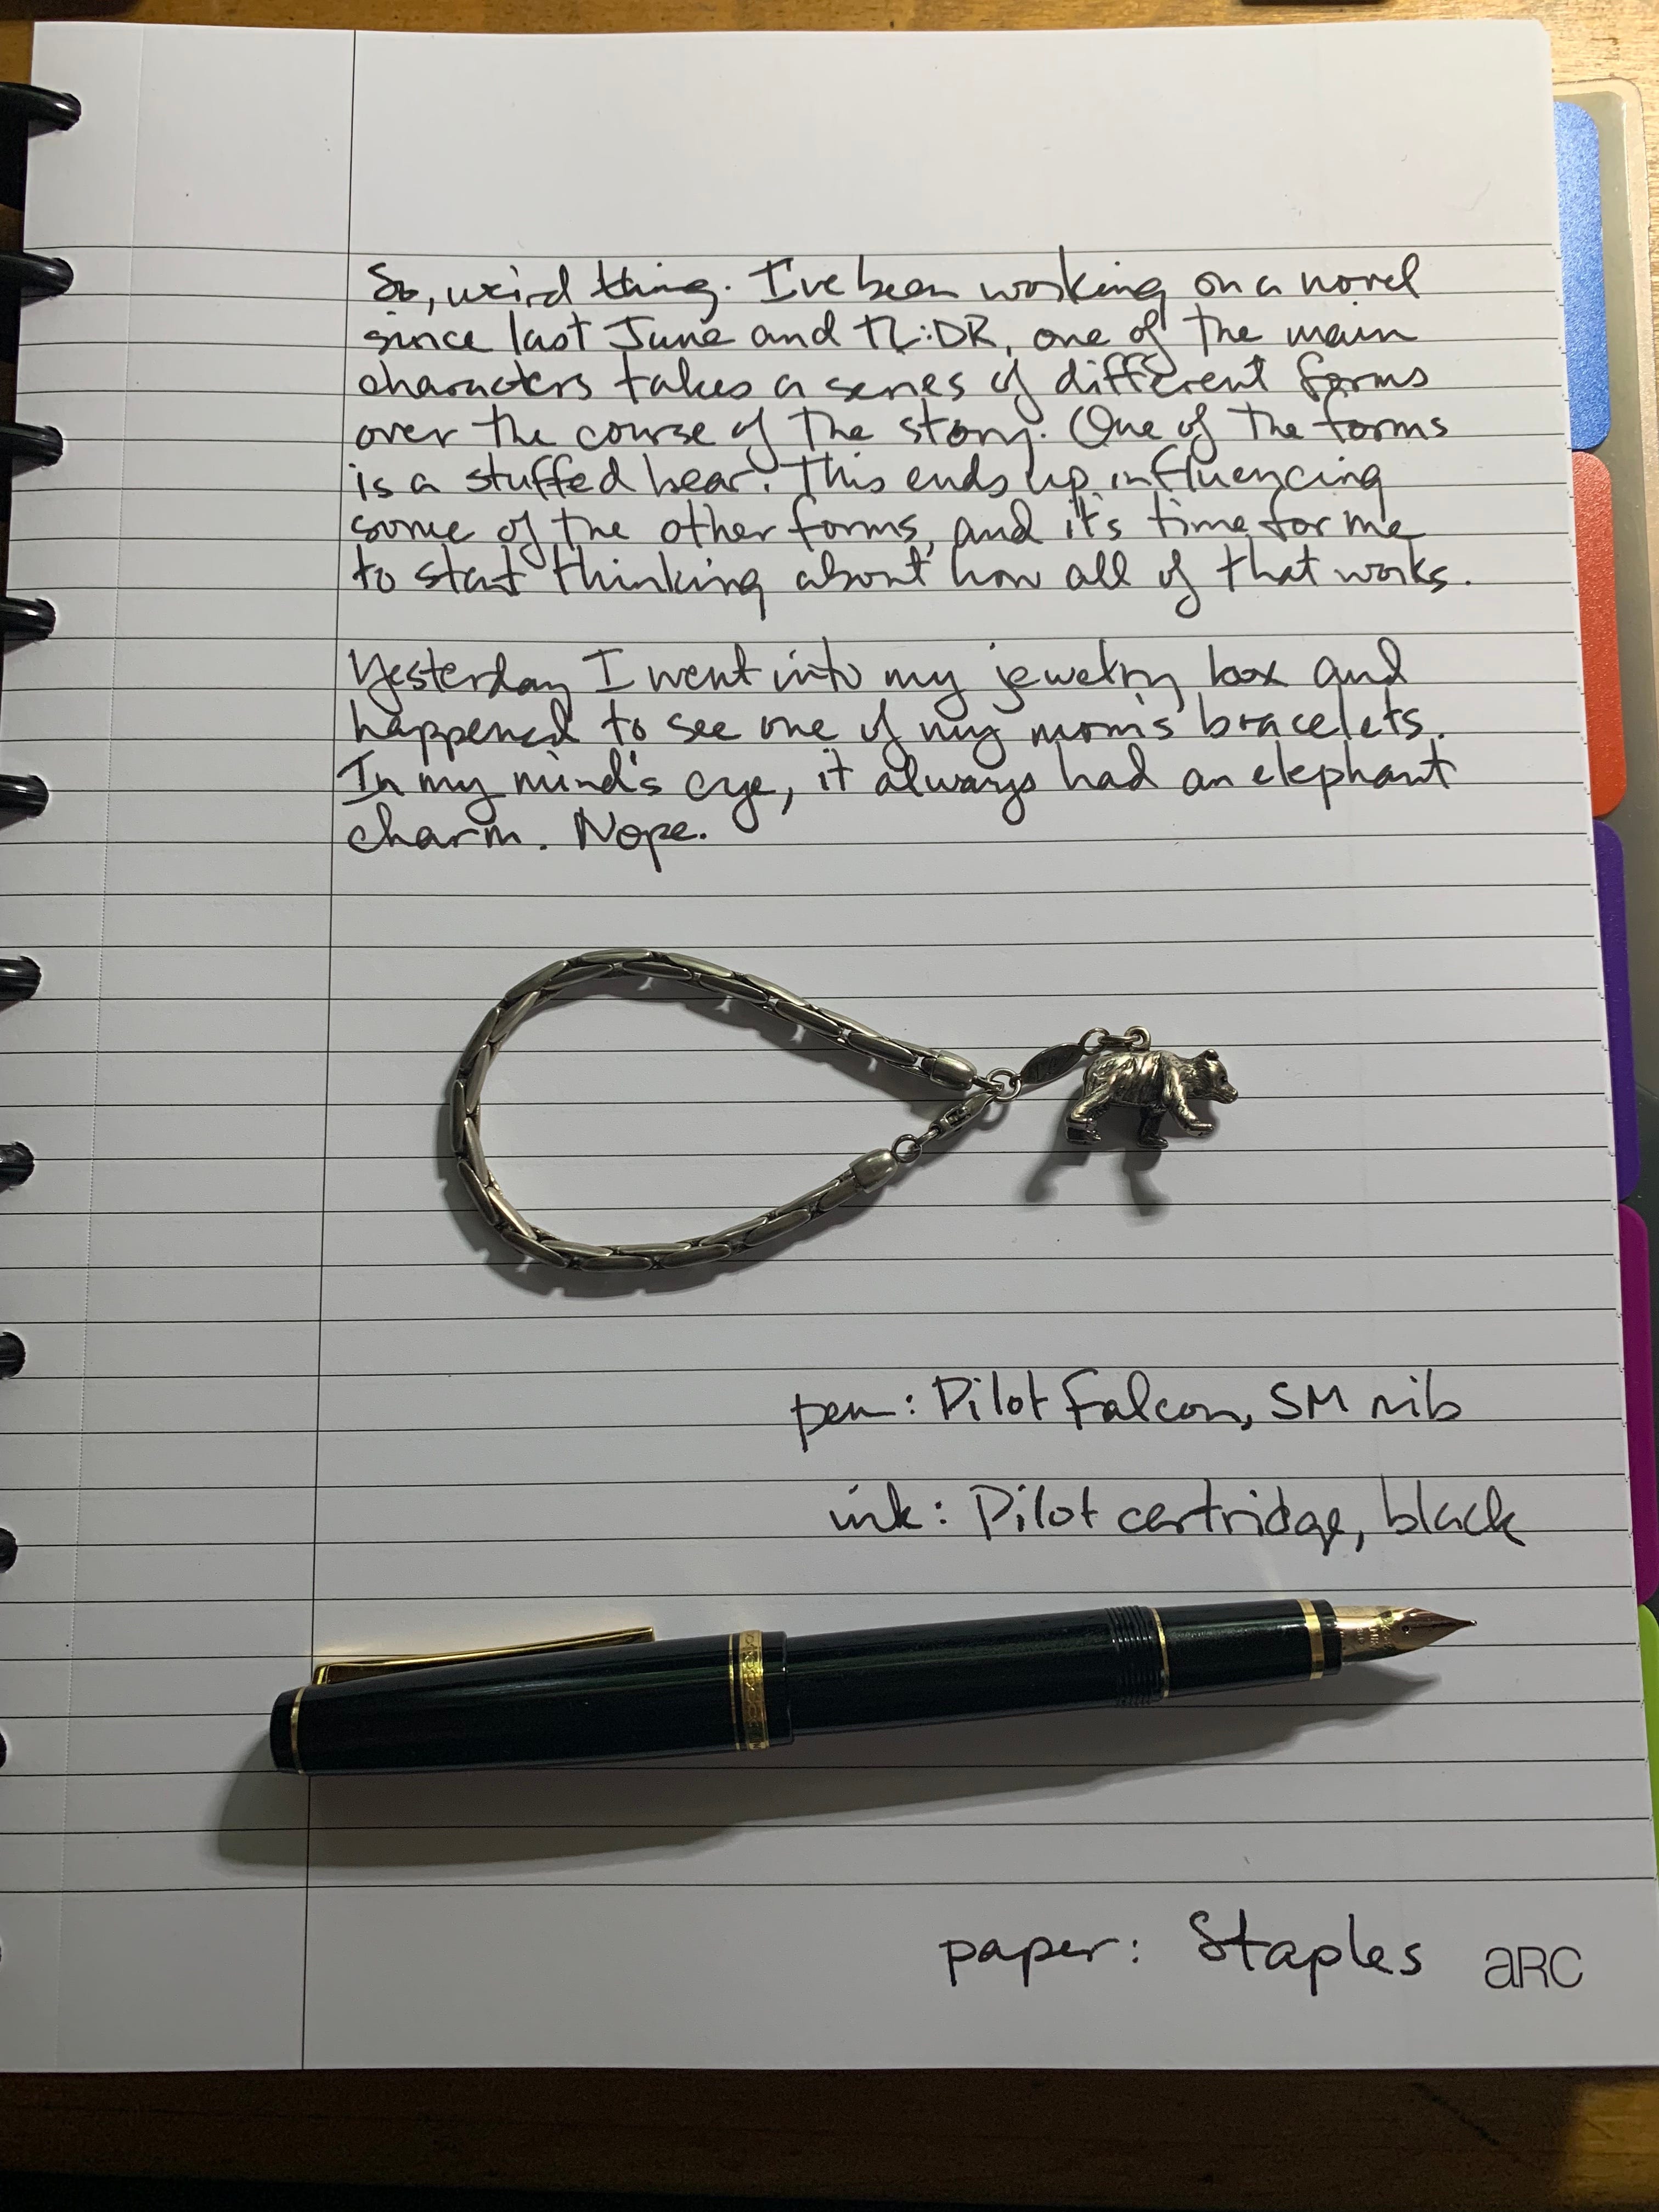 So, weird thing. I've been working on a novel
since last June and TL:DR, one of the main
characters takes a series of different forms
over the course of the story. One of the forms
is a stuffed bear. This ends up influencing
some of the other forms, and it's time for me
to start thinking about how all of that works.
Yesterday I went into my jewelry box and
happened to see one of my mom's bracelets.
In my mind's eye, it always had an elephant
charm. Nope.
pen: Pilot Falcon, SM nib
ink: Pilot cartridge, black
paper: Staples ARC